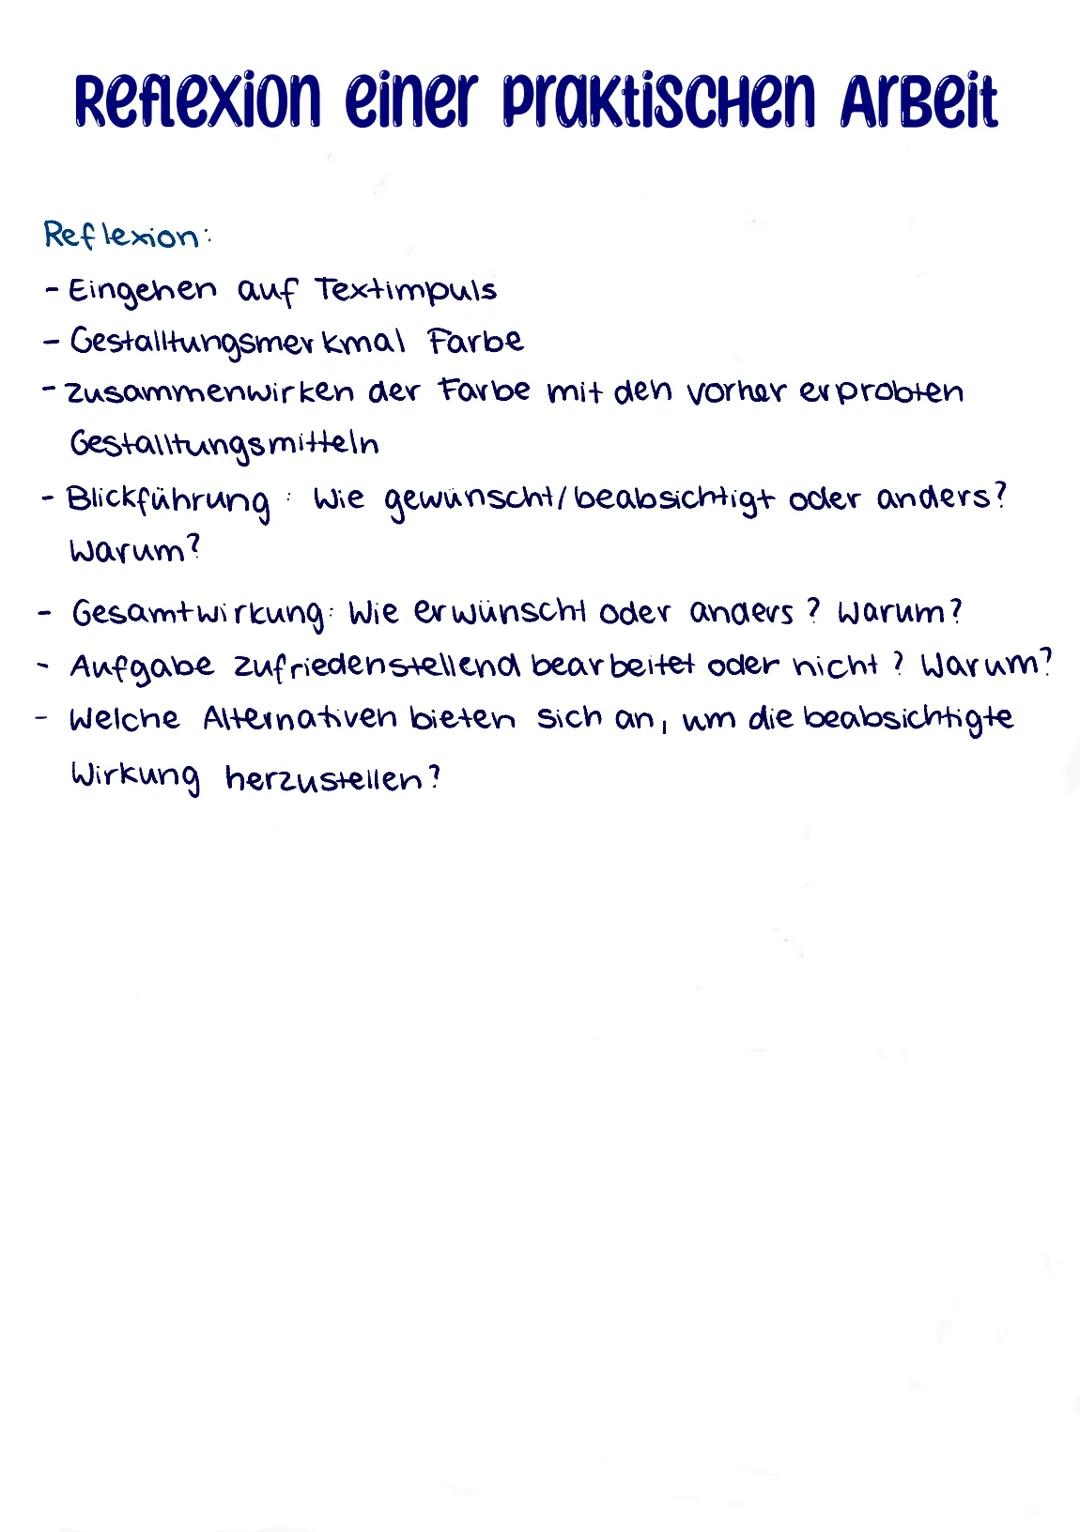 Reflexion einer praktischen Arbeit
Reflexion:
- Eingehen auf Textimpuls
- Gestalltungsmerkmal Farbe
- Zusammenwirken der Farbe mit den vorher erprobten
Gestalltungsmitteln
- Blickführung: Wie gewünscht/beabsichtigt oder anders?
Warum?
- Gesamtwirkung: Wie erwünscht oder anders? Warum?
- Aufgabe zufriedenstellend bearbeitet oder nicht? Warum?
- Welche Alternativen bieten sich an, um die beabsichtigte
Wirkung herzustellen?